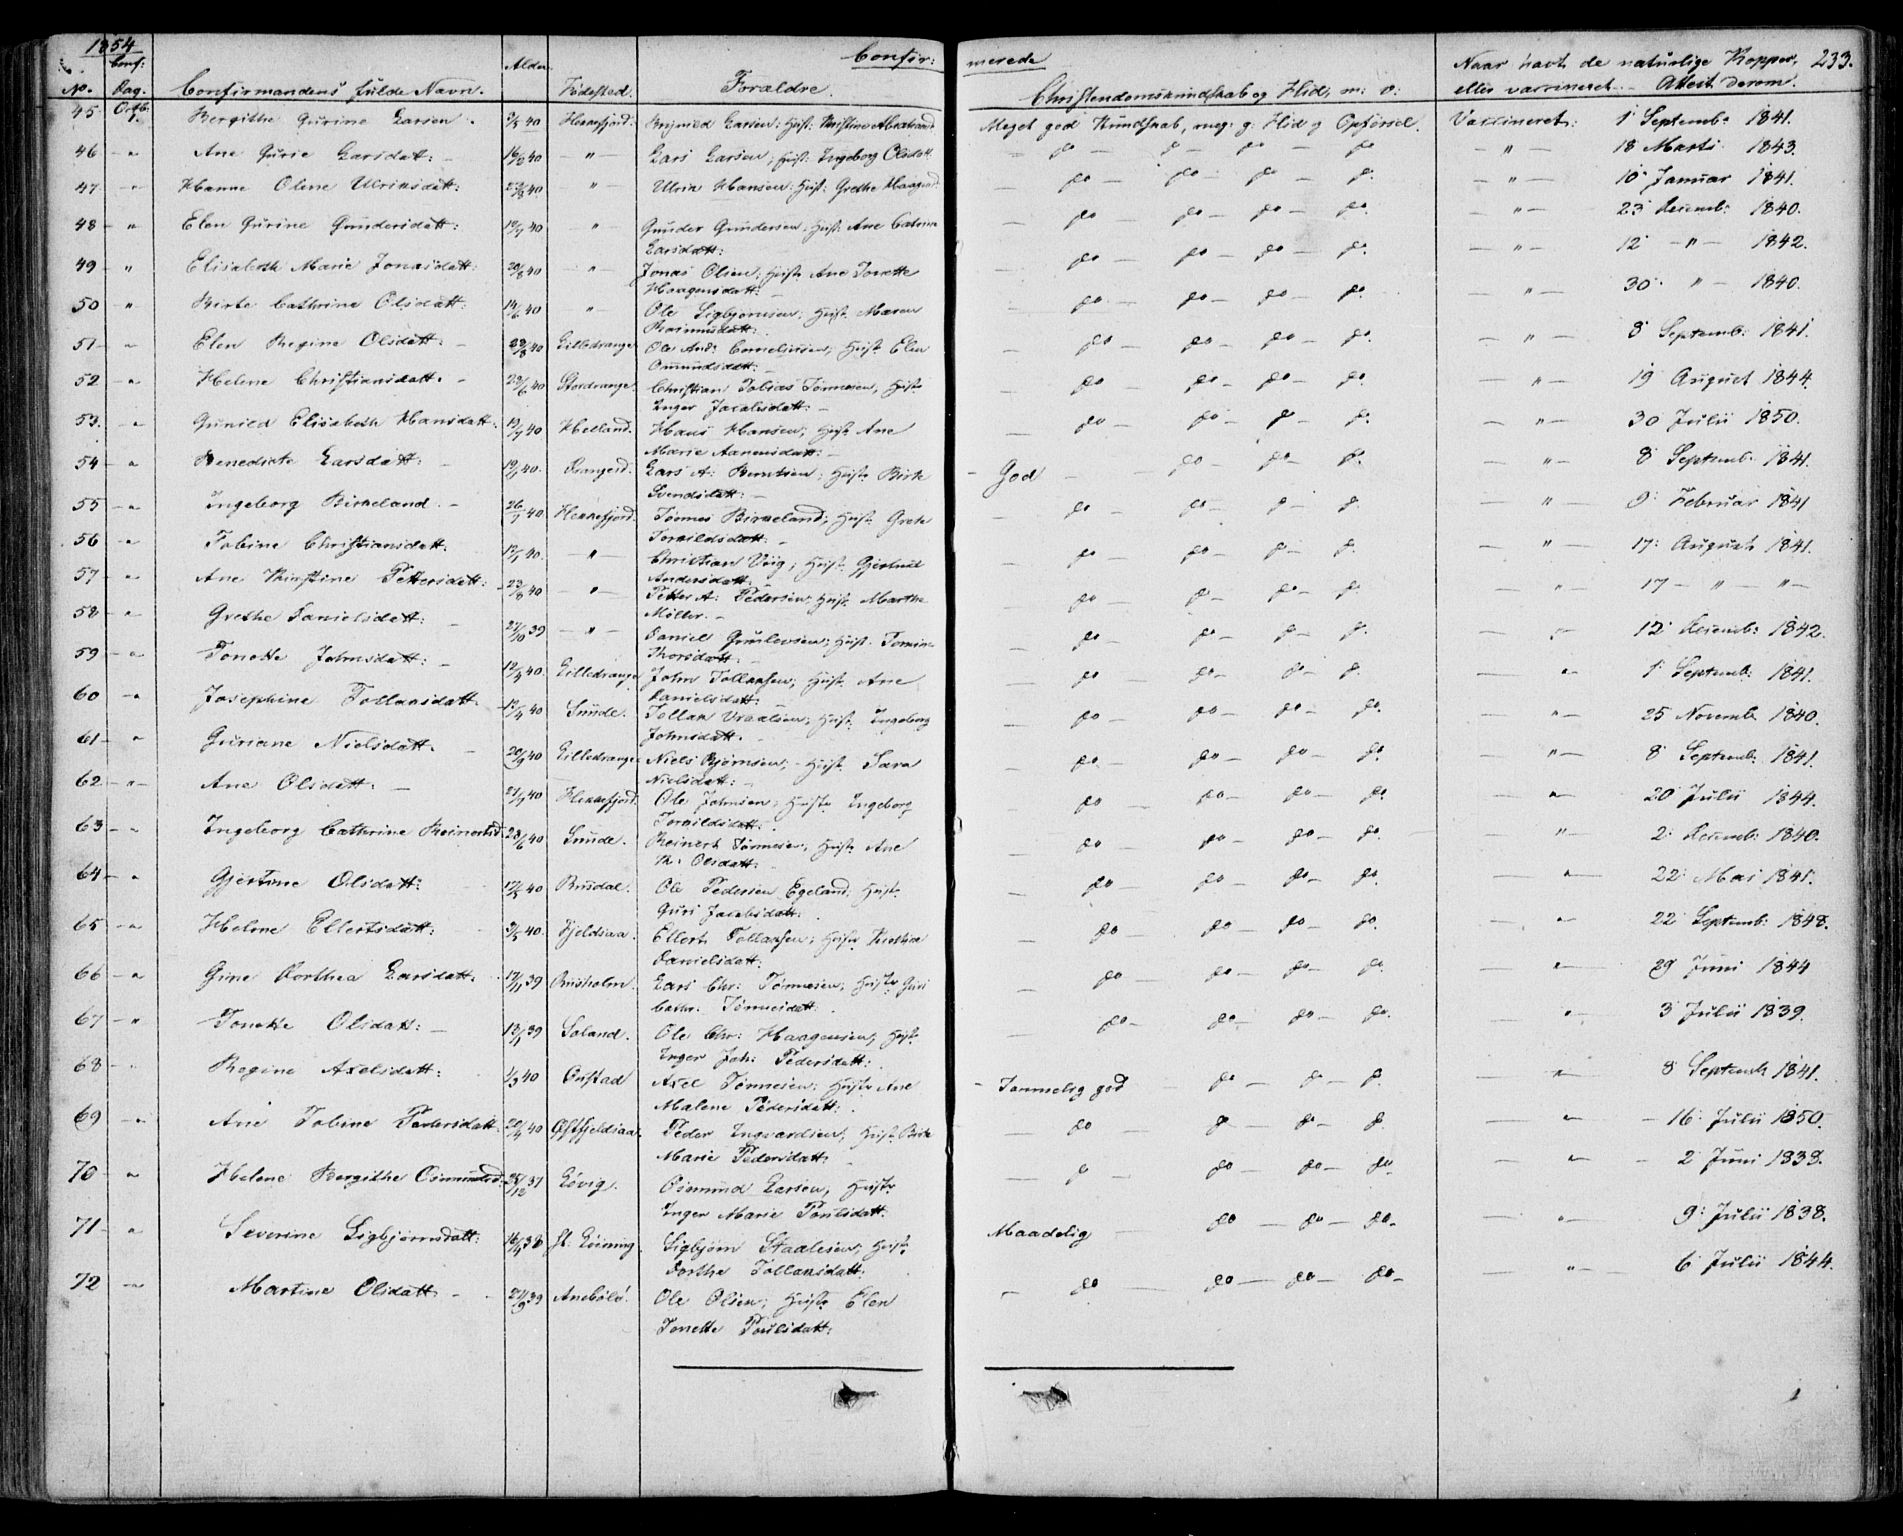 1854 Confir: merede 233.
No. Conf: Dag. Confirmandens fulde Navn. Alder. Födested. Forældre. Christendomskundskab og Flid, m: v: Naar havt de naturlige Kopper, eller vaccineret. Attest derom.
45 Octb. Bergithe Gurine Larsen. 40 Hekkefjord. Larsen: Hust: Meget god Kundskab, meg: g: Flid og Opførsel. Vaccineret: 1 Septemb: 1841.
46 " Ane Gurie Larsdat: 40 " Lars Larsen; Hust: Ingeborg Olsdatt do do do do " 18 Marts 1843.
47 " Hanne Oline Ulriksdatt: 40. " Ulrik Hansen: Hust: Grethe do do do do " 10 Januar 1841.
48 " Elen Gurine Gundersdatt: 40 " Gunder Gundersen; Hust: Ane
Larsdatt: do do do do " 23 Decemb: 1840.
49 " Elisabeth Marie Jonasdatt: 20/8 40 " Jonas Olsen; Hust: Ane Tonette
Haagensdatt: do do do do " 12 " 1842.
50 " Birte Cathrine Olsdatt: 14/6 40 " Ole Sigbjørnsen; Hust: Maren
Rasmusdatt: do do do do " 30 " 1840.
51 " Elen Regine Olsdatt: 40 Lilledrange Ole And: Corneliussen; Hust: Elen
Omundsdatt: do do do do " 8 Septemb: 1841.
52 " Helene Christiansdatt. 40 Stordrange. Christian Tobias Tönnesen, Hust:
Inger Jacobsdatt: do do do do " 19 August 1844.
53. " Gunild Elisabeth Hansdatt: 40 Helland. Hans Hansen; Hust: Ane
Marie Aanensdatt: do do do do " 30 Julii 1850.
54 " Benedicte Larsdatt: 40. Lars A: Berntsen; Hust: Birte
Svendsdatt: God do do do " 8 Septemb: 1841.
55 " Ingeborg Birkeland. 26/1 40. Hekkefjord. Tönnes Birkeland; Hust: Grete
Torkildsdatt: do do do do " 9 Februar 1841
56 " Tobine Christiansdatt: 40. " Christian Viig; Hust: Gjertrud
Andersdatt: do do do do " 17: August 1841.
57 " Ane Kirstine Pettersdatt: 23/8 40 " Petter A: Pedersen; Hust: Marthe
Möller. do do do do " 17 " "
58 " Grethe Danielsdatt: 27/10 39 " Daniel Hust:
Thorsdatt: do do do do " 12 Decemb: 1842.
59 " Tonette Johnsdatt: 40. Lilledrange John Tollaksen; Hust: Ane
Danielsdatt: do do do do " 1 Septemb: 1841.
60 " Josephine Tollaksdatt. 40 Sunde. Tollak Hust: Ingeborg
Johnsdatt. do do do do " 25 Novemb: 1840.
61 " Guriane Nielsdatt. 40 Lilledrange Niels Bjørnsen; Hust: Sara
Nielsdatt: do do do do " 8 Septemb: 1841.
62 " Ane Olsdatt: 40 Hekkefjord. Ole Johnsen; Hustr: Ingeborg
Torkildsdatt: do do do do " 20 Julii 1844.
63 " Ingeborg Cathrine Reinertsd: 23/6 40 Sunde. Reinert Tönnesen; Hustr: Ane
K: Olsdatt: do do do do " 2: Decemb: 1840.
64 " Gjertine Olsdatt: 40 Busdal. Ole Pedersen Egeland; Hust:
Guri Jacobsdatt: do do do do " 22: Mai 1841.
65 " Helene Ellertsdatt: 9/5 40. Fjeldsaa. Ellert Tollaksen; Hustr:
Danielsdatt: do do do do " 22 Septemb: 1848.
66 " Gine Dorthea Larsdatt: 17/11 39 Lars Chr: Tönnesen; Hustr: Guri
Cathr: Tönnesdatt: do do do do " 29 Juni 1844
67 " Tonette Olsdatt: 39 Soland. Ole Chr: Haagensen; Hust:
Inger Joh: Pedersdatt: do do do do " 3 Julii 1839.
68 " Regine Axelsdatt: 1/3 40 Onstad Axel Tönnesen: Hustr: Ane
Malene Pedersdatt: Temmelig god do do do " 8 Septemb: 1841.
69 " Ane Tobine Pedersdatt 40 Østfjeldsaa Peder Ingvardsen; Hust: Birte
Marie Pedersdatt: do do do do " 16: Julii 1850.
70 " Helene Bergithe Osmundsd: 37 Lövig. Osmund Larsen; Hustr:
Inger Marie Poulsdatt. do do do do " 2 Juni 1838.
71 " Severine Sigbjørnsdatt: 38 St. Sigbjørn Staalesen; Hust:
Dorthe Tollaksdatt: Maadelig do do do " 9: Julii 1838.
72 " Martine Olsdatt: 39 Anebölö. Ole Olsen; Hustr: Elen
Tonette Poulsdatt: do do do do " 6 Julii 1844.